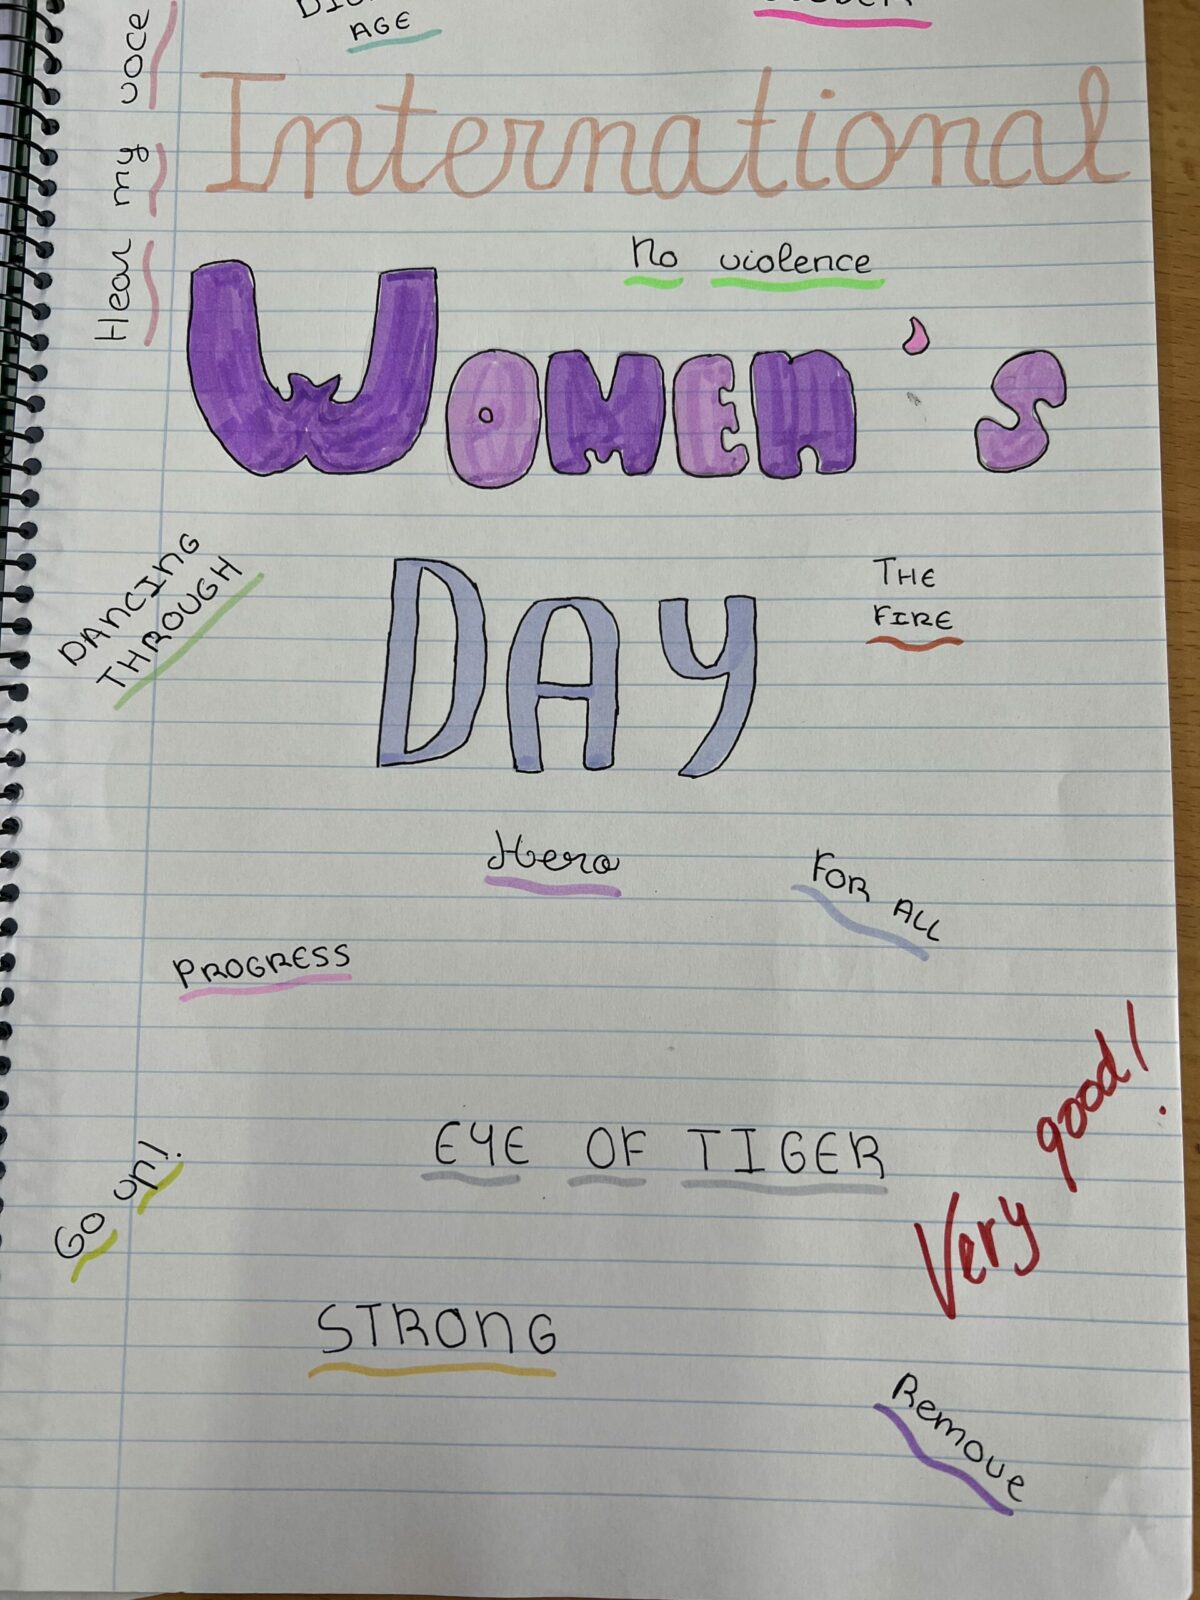 AGE
Hear my voce
International
No violence
Women's
DANCING
THROUGH
THE
FIRE
DAY
Hero
FOR ALL
PROGRESS
Very good!
EYE OF TIGER
Go on!
STRONG
Remove